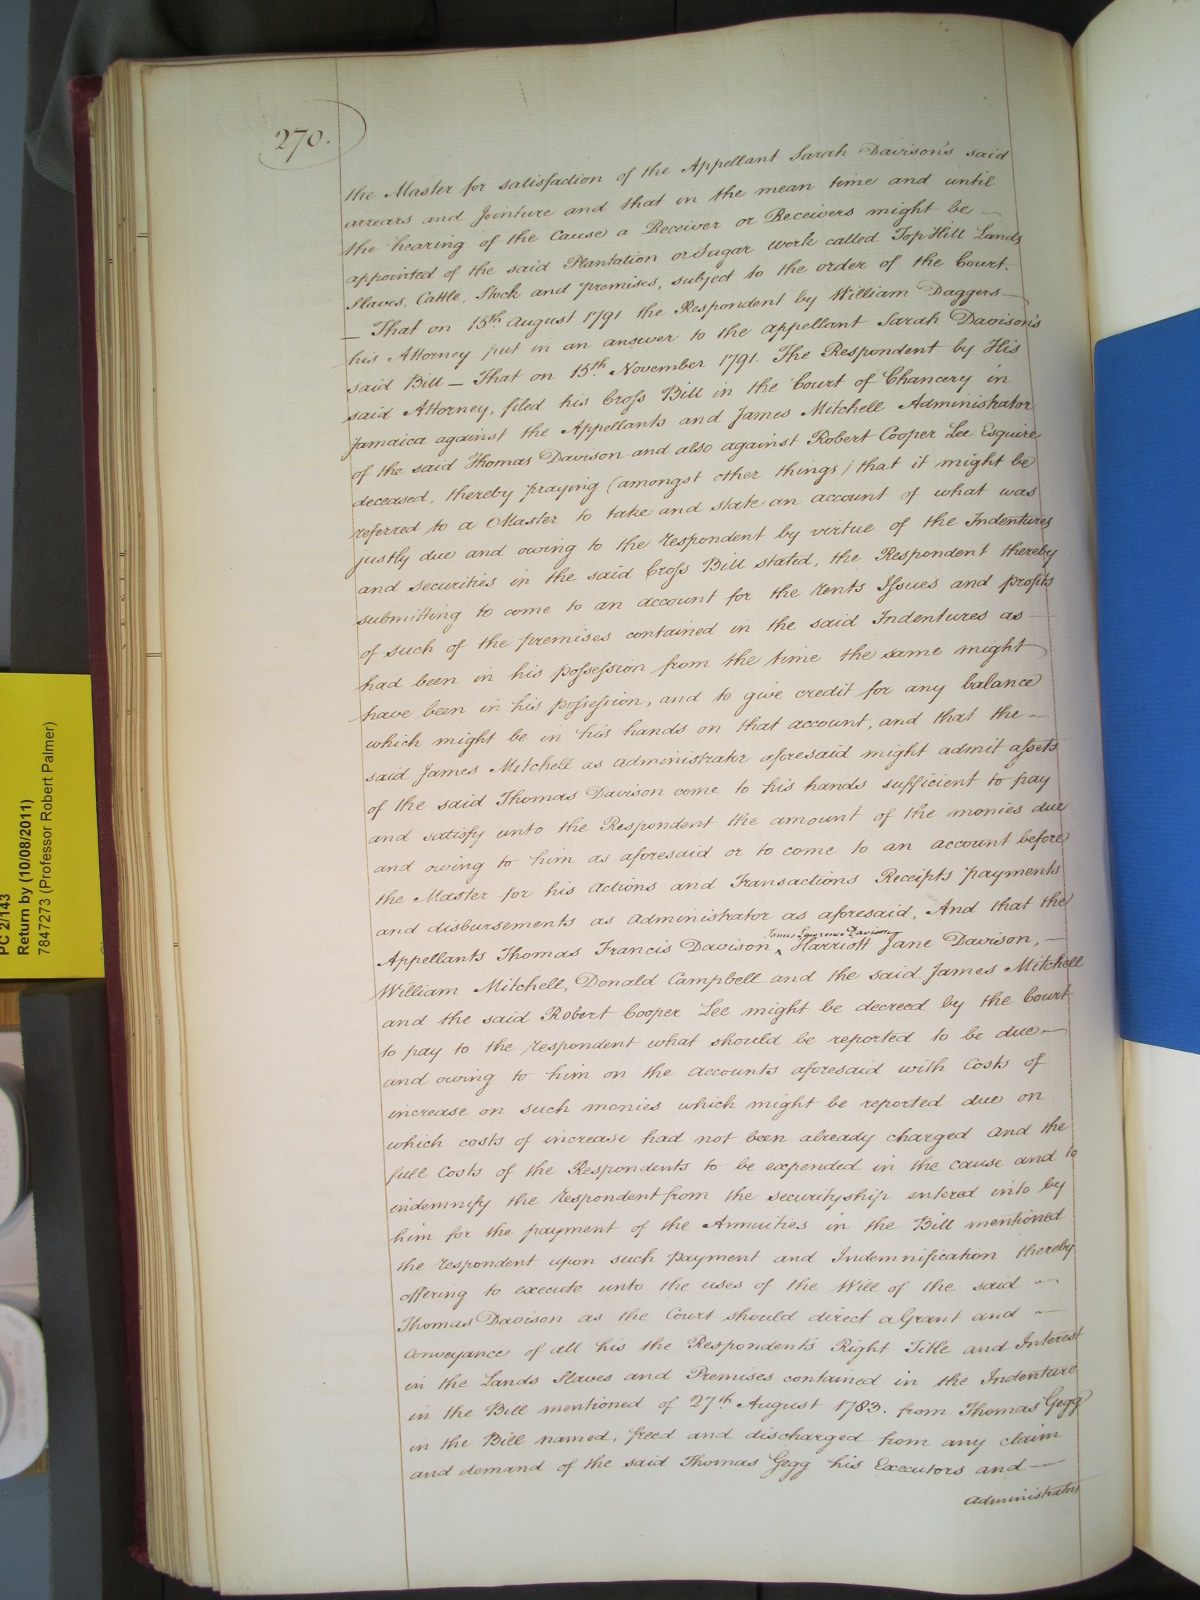 270.
the Master for satisfaction of the Appellant Sarah Davison's said
arrears and Jointure and that in the mean time and until
the hearing of the Cause a Receiver or Receivers might be
appointed of the said Plantation or Sugar work called Top Hill Lands
Slaves, Cattle, Stock and premises, subject to the order of the Court.
— That on 15th August 1791 the Respondent by William Daggers
his Attorney put in an answer to the appellant Sarah Davison's
said Bill — That on 15th November 1791. The Respondent by His
said Attorney, filed his Cross Bill in the Court of Chancery in
Jamaica against the Appellants and James Mitchell Administrator
of the said Thomas Davison and also against Robert Cooper Lee Esquire
deceased, thereby praying (amongst other things) that it might be
referred to a Master to take and state an account of what was
justly due and owing to the respondent by virtue of the Indentures
and securities in the said Cross Bill stated, the Respondent thereby
submitting to come to an account for the rents Issues and profits
of such of the premises contained in the said Indentures as —
had been in his possession from the time the same might
have been in his possession, and to give credit for any balance
which might be in his hands on that account, and that the —
said James Mitchell as administrator aforesaid might admit assets
of the said Thomas Davison come to his hands sufficient to pay
and satisfy unto the Respondent the amount of the monies due
and owing to him as aforesaid or to come to an account before
the Master for his actions and Transactions Receipts payments
and disbursements as administrator as aforesaid, And that the
James Lawrence Davison
Appellants Thomas Francis Davison ‸ Harriott Jane Davison, —
William Mitchell, Donald Campbell and the said James Mitchell
and the said Robert Cooper Lee might be decreed by the Court
to pay to the respondent what should be reported to be due —
and owing to him on the accounts aforesaid with Costs of
increase on such monies which might be reported due on
which costs of increase had not been already charged and the
full Costs of the Respondents to be expended in the cause and to
indemnify the respondent from the securityship entered into by
him for the payment of the Annuities in the Bill mentioned
the respondent upon such payment and Indemnification thereby
offering to execute unto the uses of the Will of the said —
Thomas Davison as the Court should direct a Grant and —
Conveyance of all his the Respondent's Right Title and Interest
in the Lands Slaves and Premises contained in the Indenture
in the Bill mentioned of 27th August 1783. from Thomas Gegg
in the Bill named, freed and discharged from any claim
and demand of the said Thomas Gegg his Executors and —
administrators
PC 2/143
Return by (10/08/2011)
7847273 (Professor Robert Palmer)